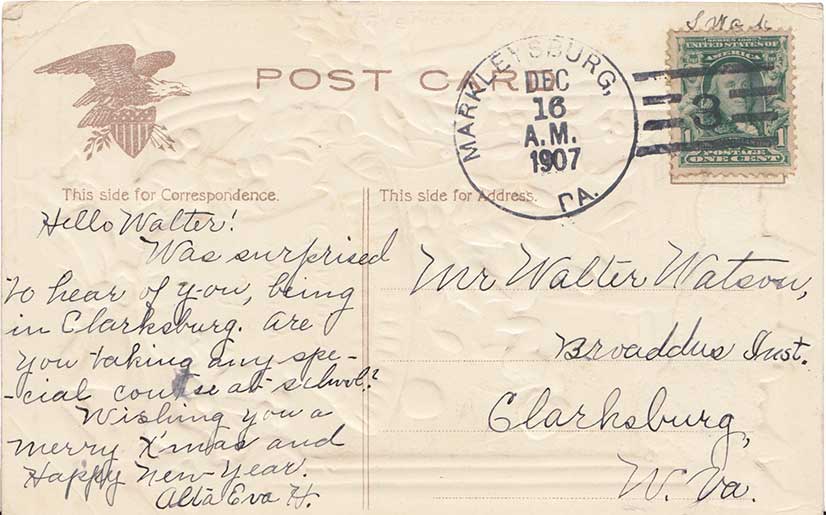 POST CARD
MARKLEYSBURG,
DEC
16
A.M.
1907
PA.
3
SERIES 1902
UNITED STATES OF
AMERICA
POSTAGE
1
ONE CENT
This side for Correspondence.
Hello Walter!
Was surprised
to hear of you, being
in Clarksburg. are
you taking any spe-
-cial course at school?
Wishing you a
merry X'mas and
Happy New-Year.
Alta Eva H.
This side for Address.
Mr Walter Watson,
Broaddus Inst.
Clarksburg,
W. Va.